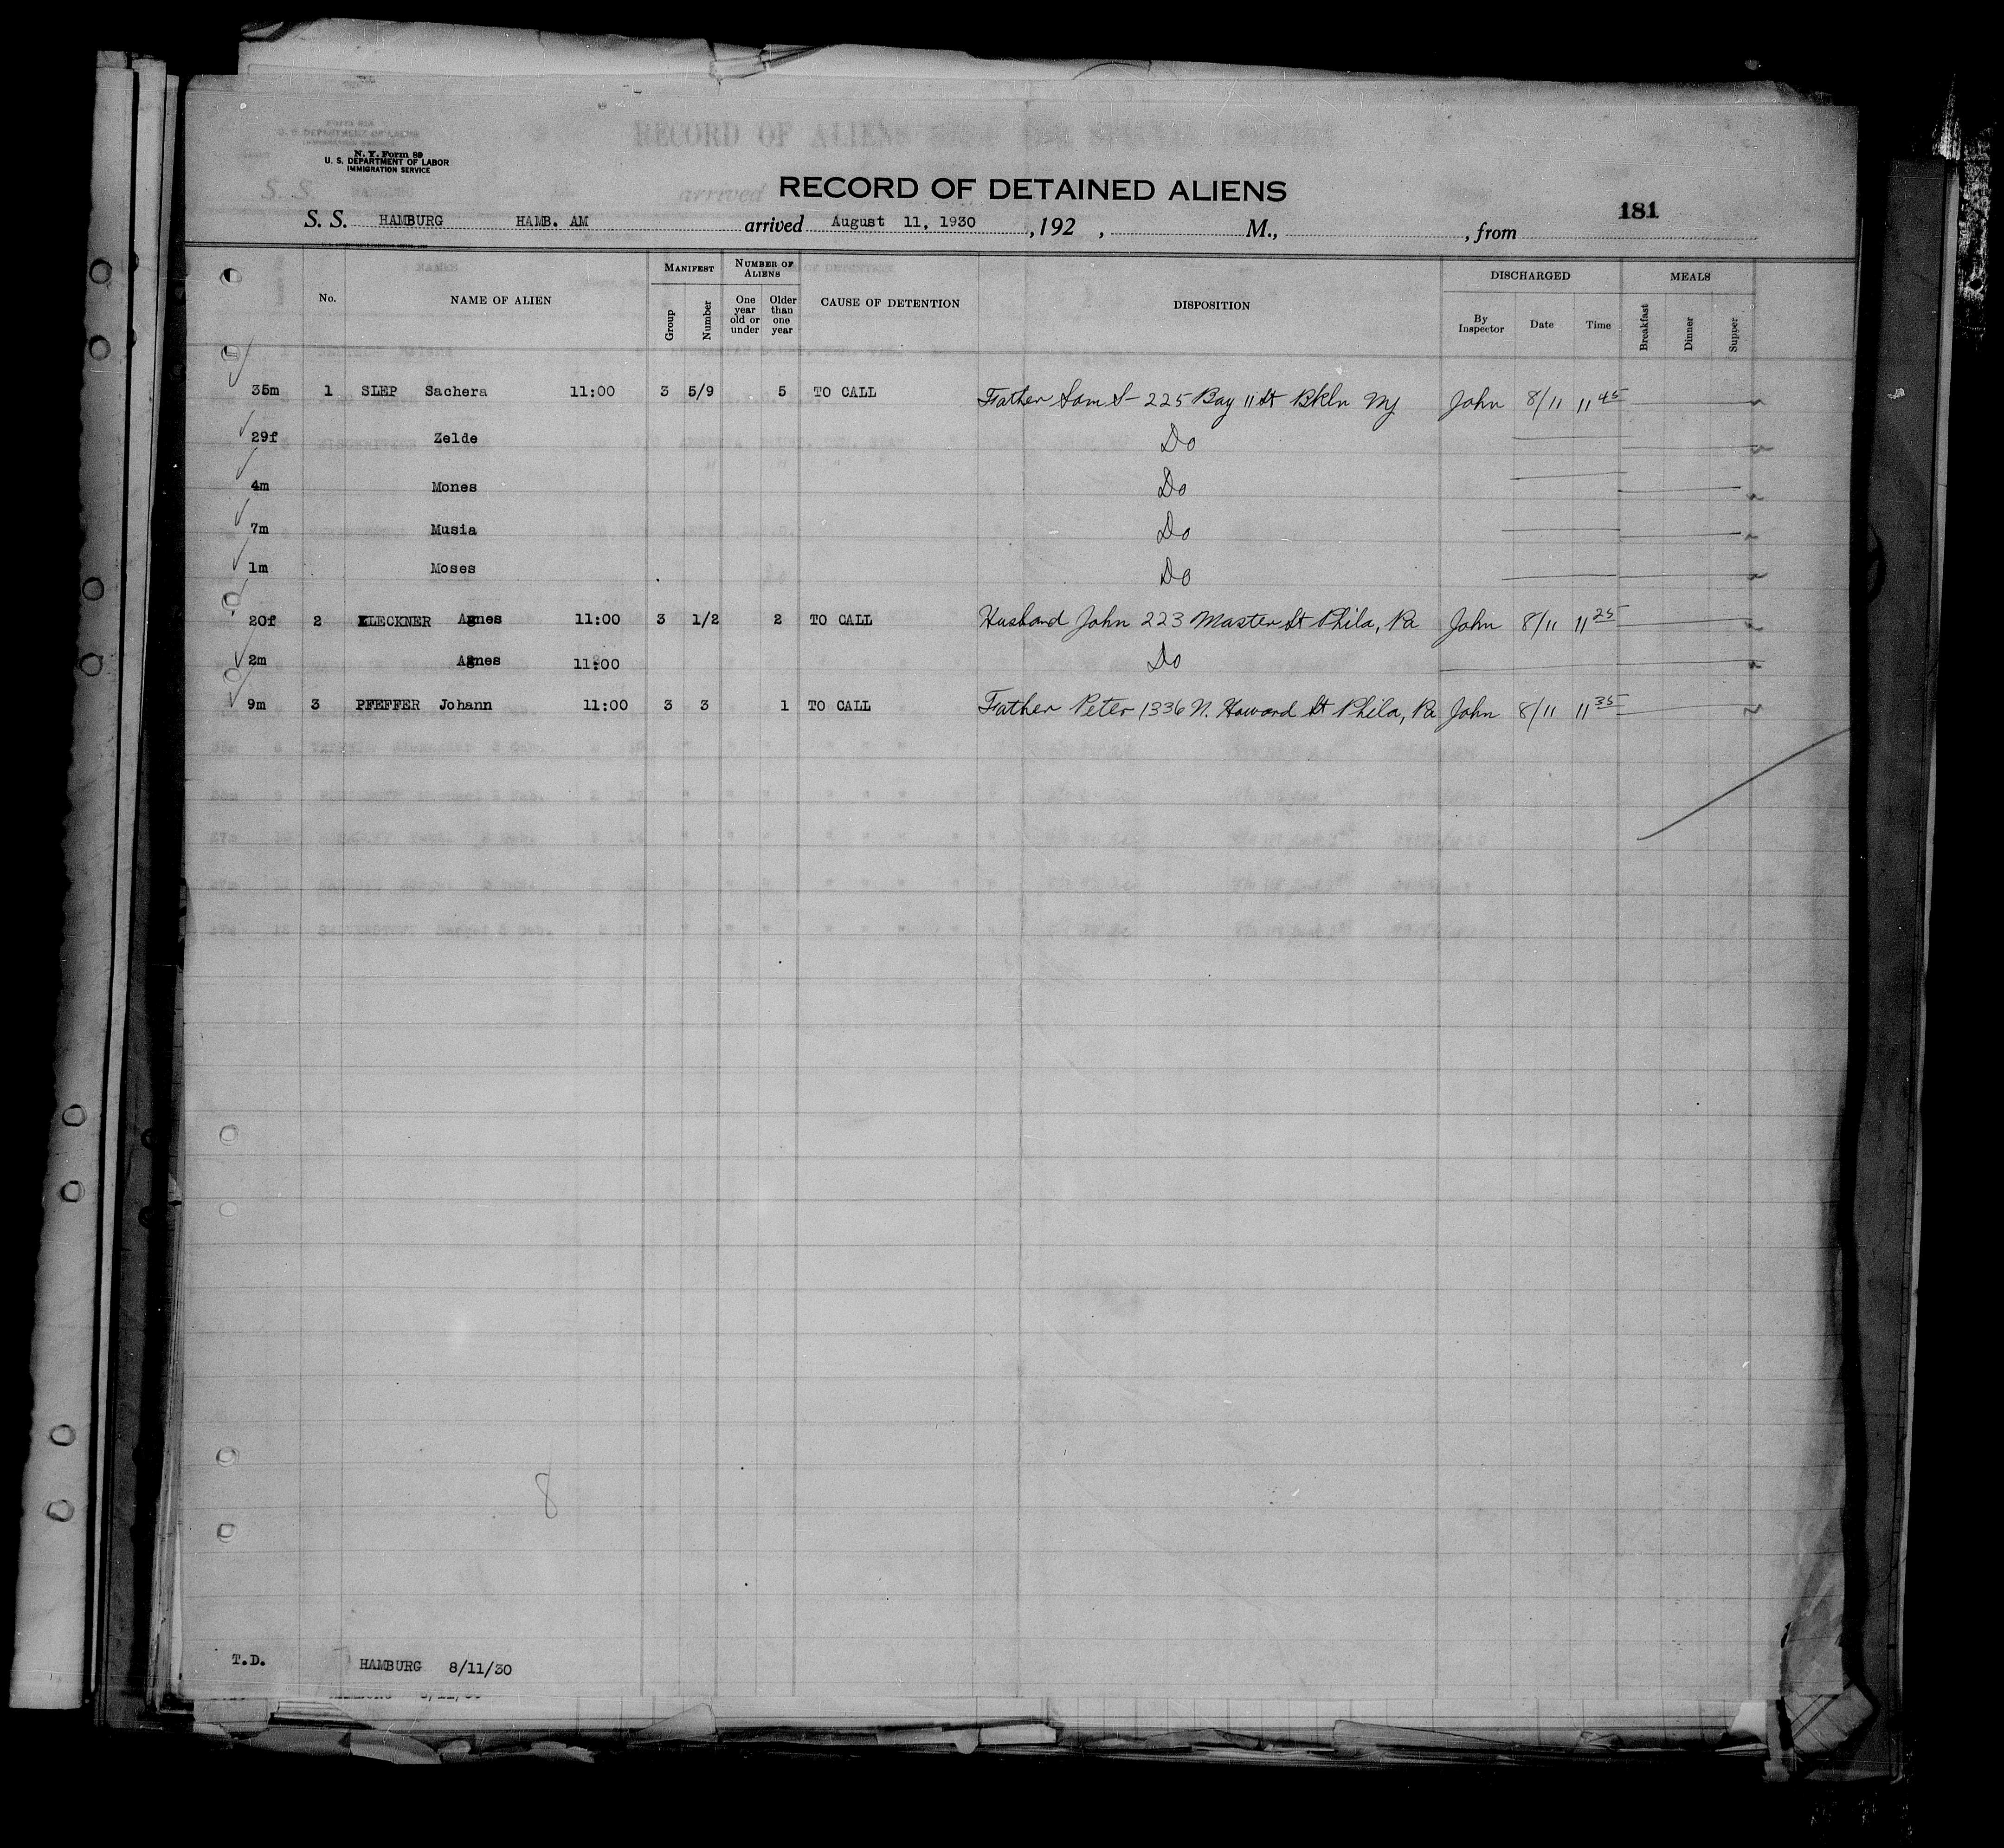 N. Y. Form 89
U. S. DEPARTMENT OF LABOR
IMMIGRATION SERVICE
RECORD OF DETAINED ALIENS
181
S. S. HAMBURG HAMB. AM arrived August 11, 1930 , 192 , M., , from
No. NAME OF ALIEN MANIFEST Group Number NUMBER OF ALIENS One year old or under Older than one year CAUSE OF DETENTION DISPOSITION DISCHARGED By Inspector Date Time MEALS Breakfast Dinner Supper
35m 1 SLEP Sachera 11:00 3 5/9 5 TO CALL Father Sam S- 225 Bay 11 St Bkln NY John 8/11 11 45
29f Zelde Do
4m Mones Do
7m Musia Do
1m Moses Do
20f 2 KLECKNER Agnes 11:00 3 1/2 2 TO CALL Husband John 223 Master St Phila, Pa John 8/11 11 25
2m Agnes 11:00 Do
9m 3 PFEFFER Johann 11:00 3 3 1 TO CALL Father Peter 1336 N. Howard St Phila, Pa John 8/11 11 35
8
T.D. HAMBURG 8/11/30